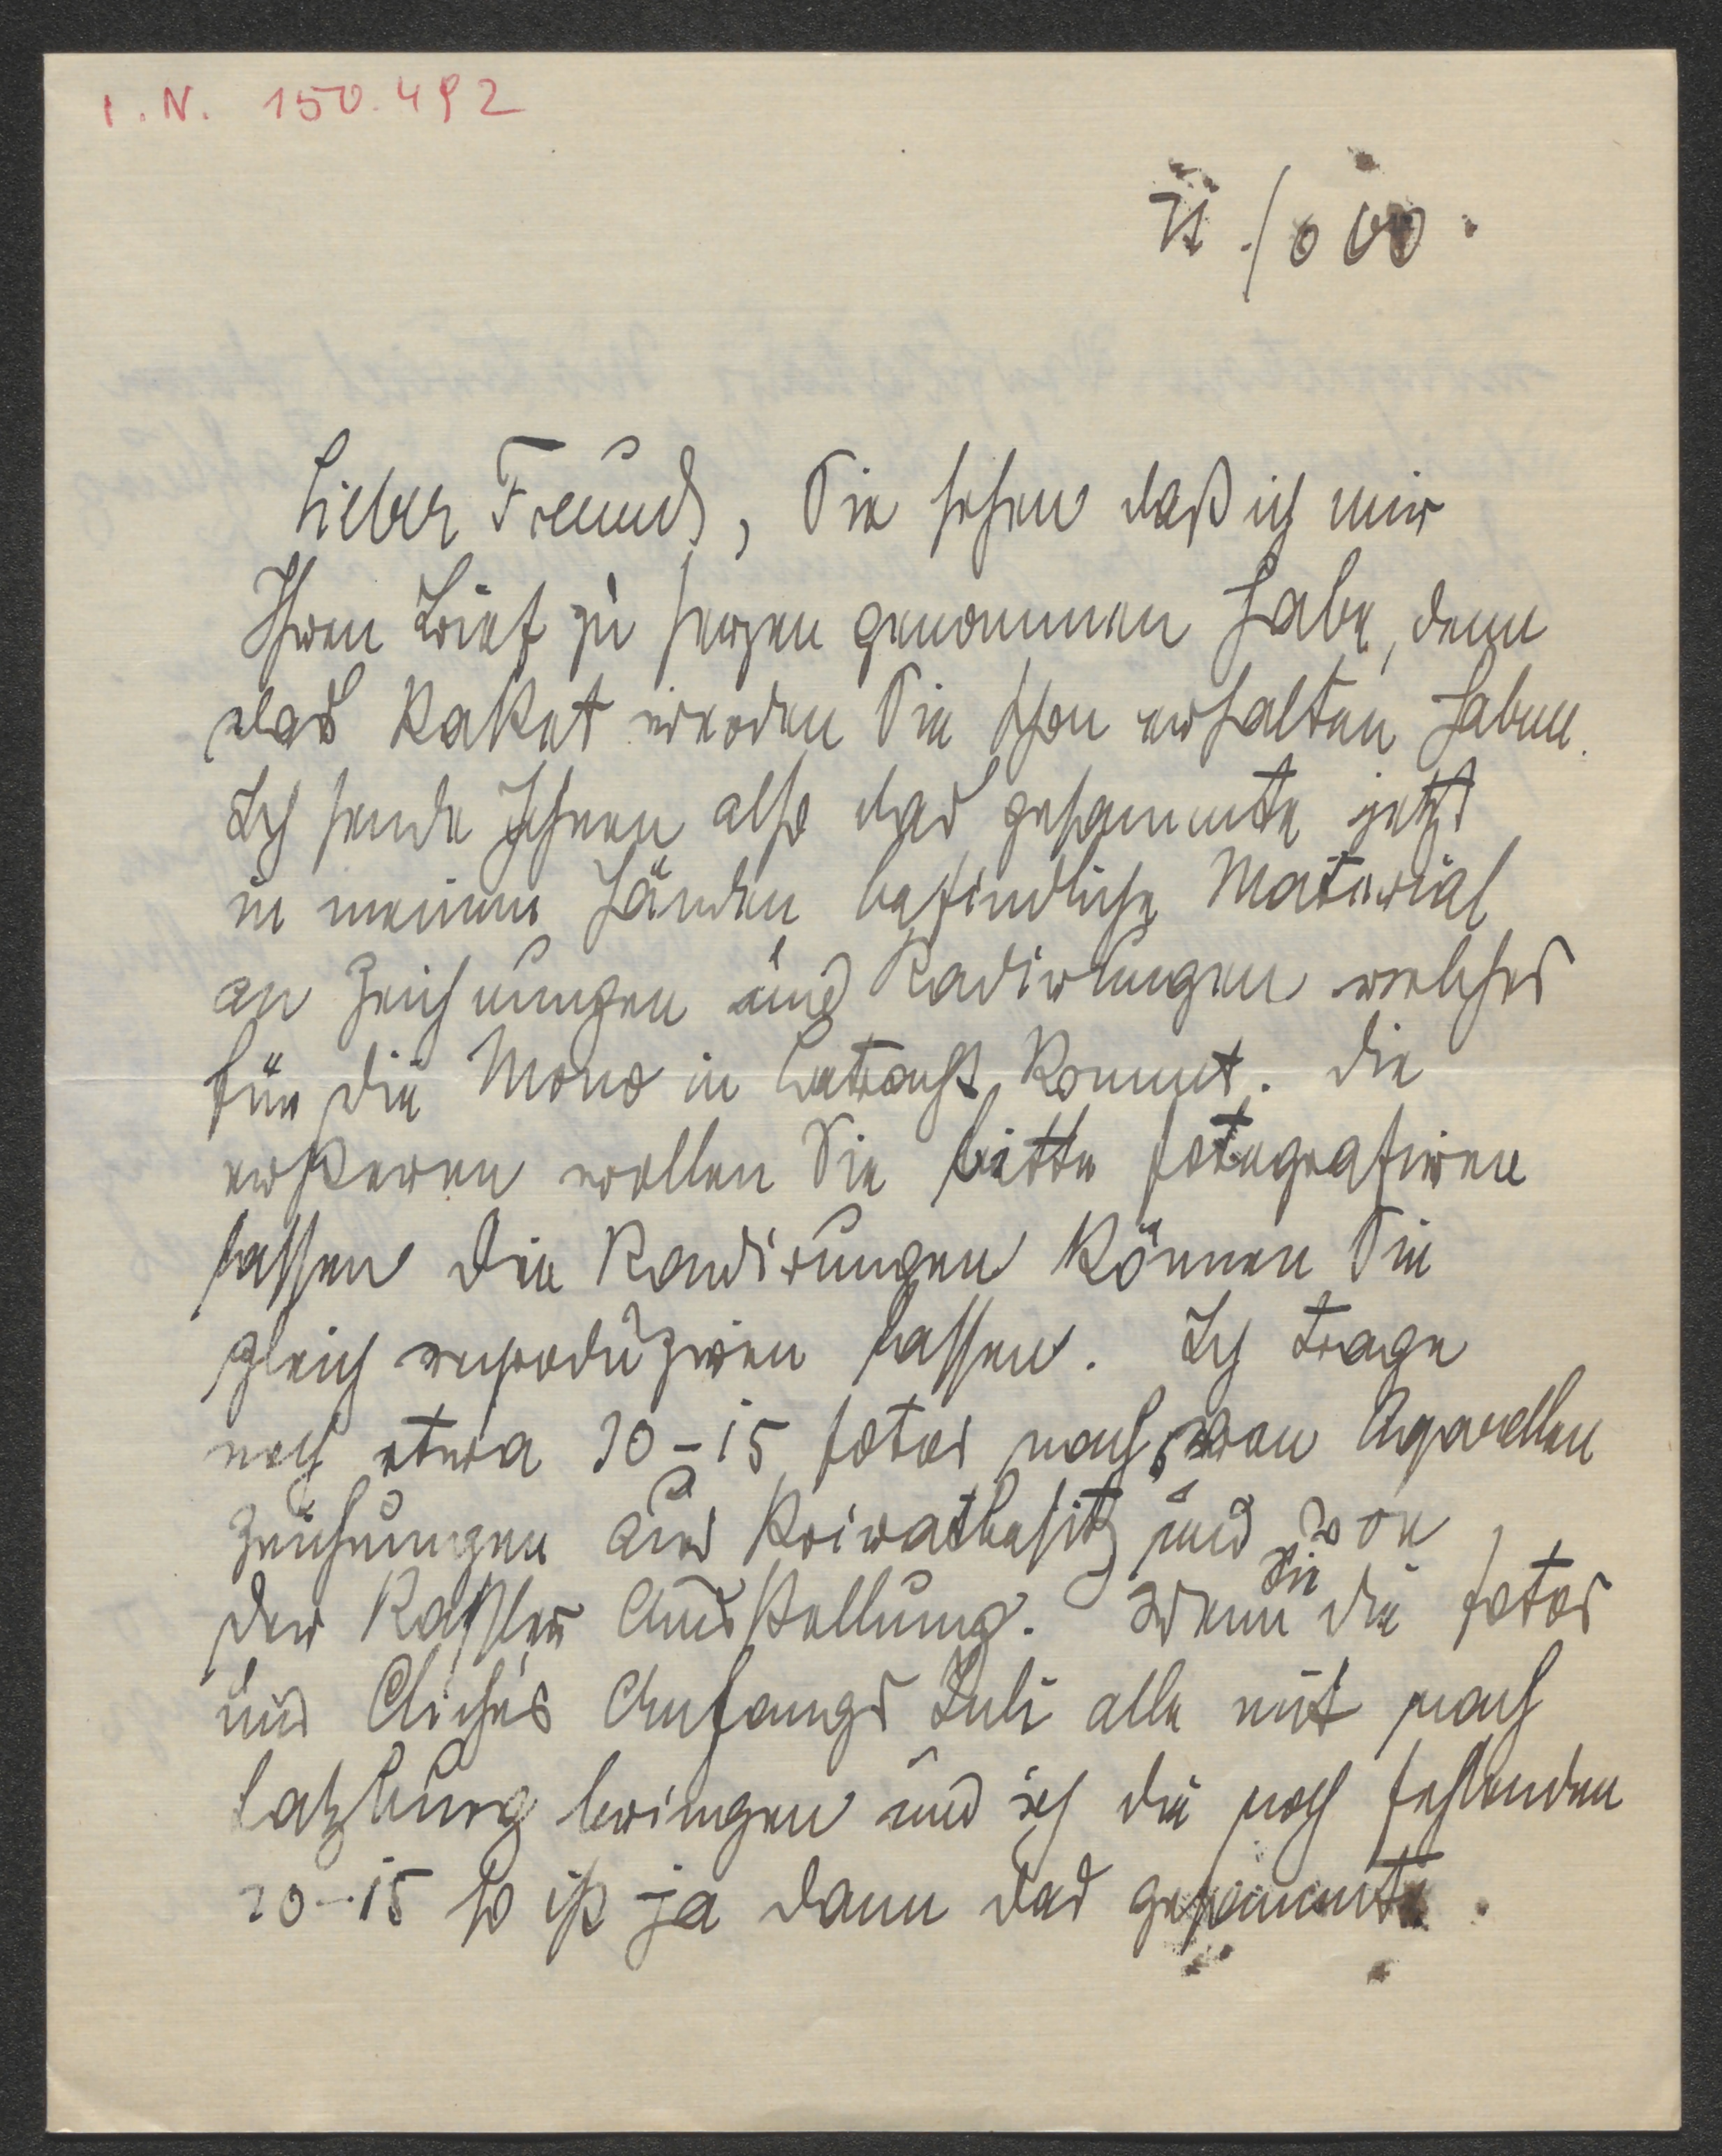 I. N. 150.492
Lieber Freund, Sie sehen daß ich mir
Ihren Brief zu herzen genommen habe, denn
das Paket werden Sie schon erhalten haben.
Ich sende Ihnen also das gesammte jetzt
in meinen Händen befindliche Material
an Zeichnungen und Radirungen welches
für die Mono in betracht kommt. Die
ersteren wollen Sie bitte fotografiren
lassen die Radirungen können Sie
gleich reproduziren lassen. Ich trage
noch etwa 10-15 fotos nach, von Aqarellen
Zeichnungen aus Privatbesitz und von
der Kassler Ausstellung. Wenn Sie die fotos
und Clichés Anfangs Juli alle mit nach
Salzburg bringen und ich die noch fehlenden
10-15 so ist ja dann das gesammte